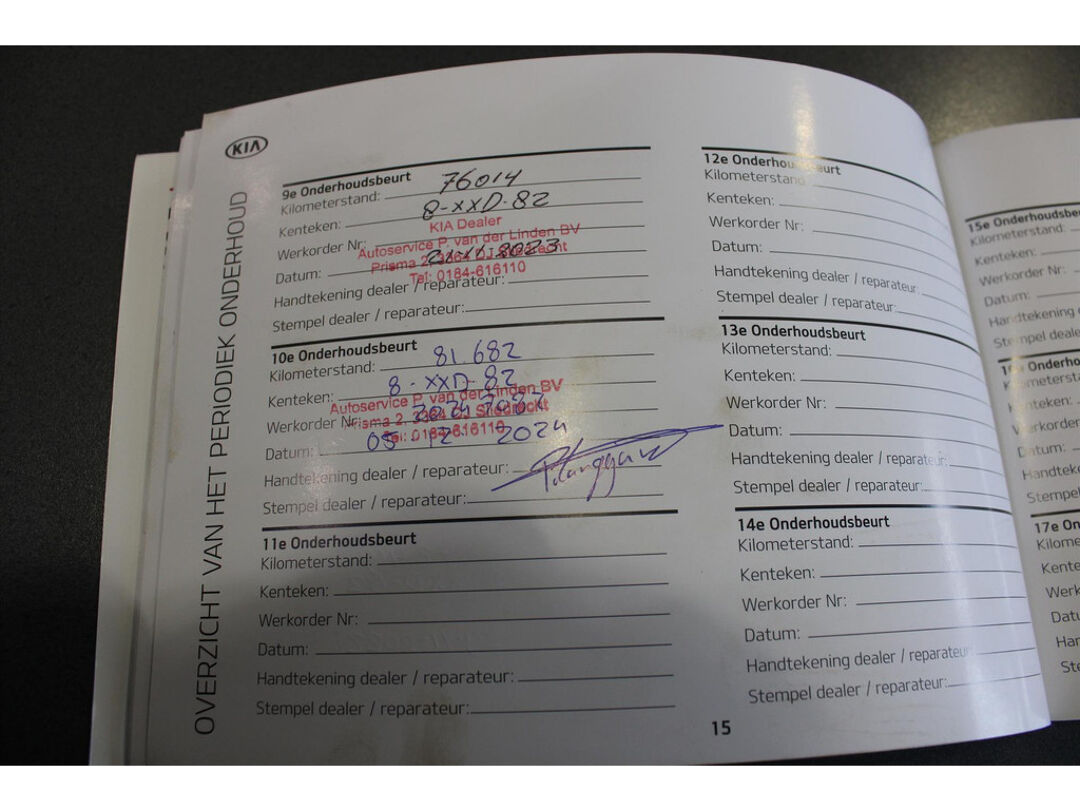 KIA
OVERZICHT VAN HET PERIODIEK ONDERHOUD
9e Onderhoudsbeurt
Kilometerstand: 76014
Kenteken: 8-XXD-82
KIA Dealer
Werkorder Nr:
Autoservice P. van der Linden BV
Datum: 2023
Prisma 2, 3364 DJ Sliedrecht
Tel: 0184-616110
Handtekening dealer / reparateur:
Stempel dealer / reparateur:
10e Onderhoudsbeurt
Kilometerstand: 81.682
Kenteken: 8-XXD-82
Autoservice P. van der Linden BV
Werkorder Nr:
Prisma 2, 3364 DJ Sliedrecht
Tel: 0184-616110
Datum: 05 12 2024
Handtekening dealer / reparateur:
Stempel dealer / reparateur:
11e Onderhoudsbeurt
Kilometerstand:
Kenteken:
Werkorder Nr:
Datum:
Handtekening dealer / reparateur:
Stempel dealer / reparateur:
12e Onderhoudsbeurt
Kilometerstand
Kenteken:
Werkorder Nr:
Datum:
Handtekening dealer / reparateur
Stempel dealer / reparateur:
13e Onderhoudsbeurt
Kilometerstand:
Kenteken:
Werkorder Nr:
Datum:
Handtekening dealer / reparateur:
Stempel dealer / reparateur:
14e Onderhoudsbeurt
Kilometerstand:
Kenteken:
Werkorder Nr:
Datum:
Handtekening dealer / reparateur
Stempel dealer / reparateur:
15
15e Onderhoudsbe
Kilometerstand:
Kenteken:
Werkorder Nr:
Datum:
Handtekening d
Stempel deale
Onderho
Kilometersta
Kenteken:
Werkorder
Datum:
Handtek
Stempel
17e On
Kilome
Kente
Werk
Datu
Han
Ste